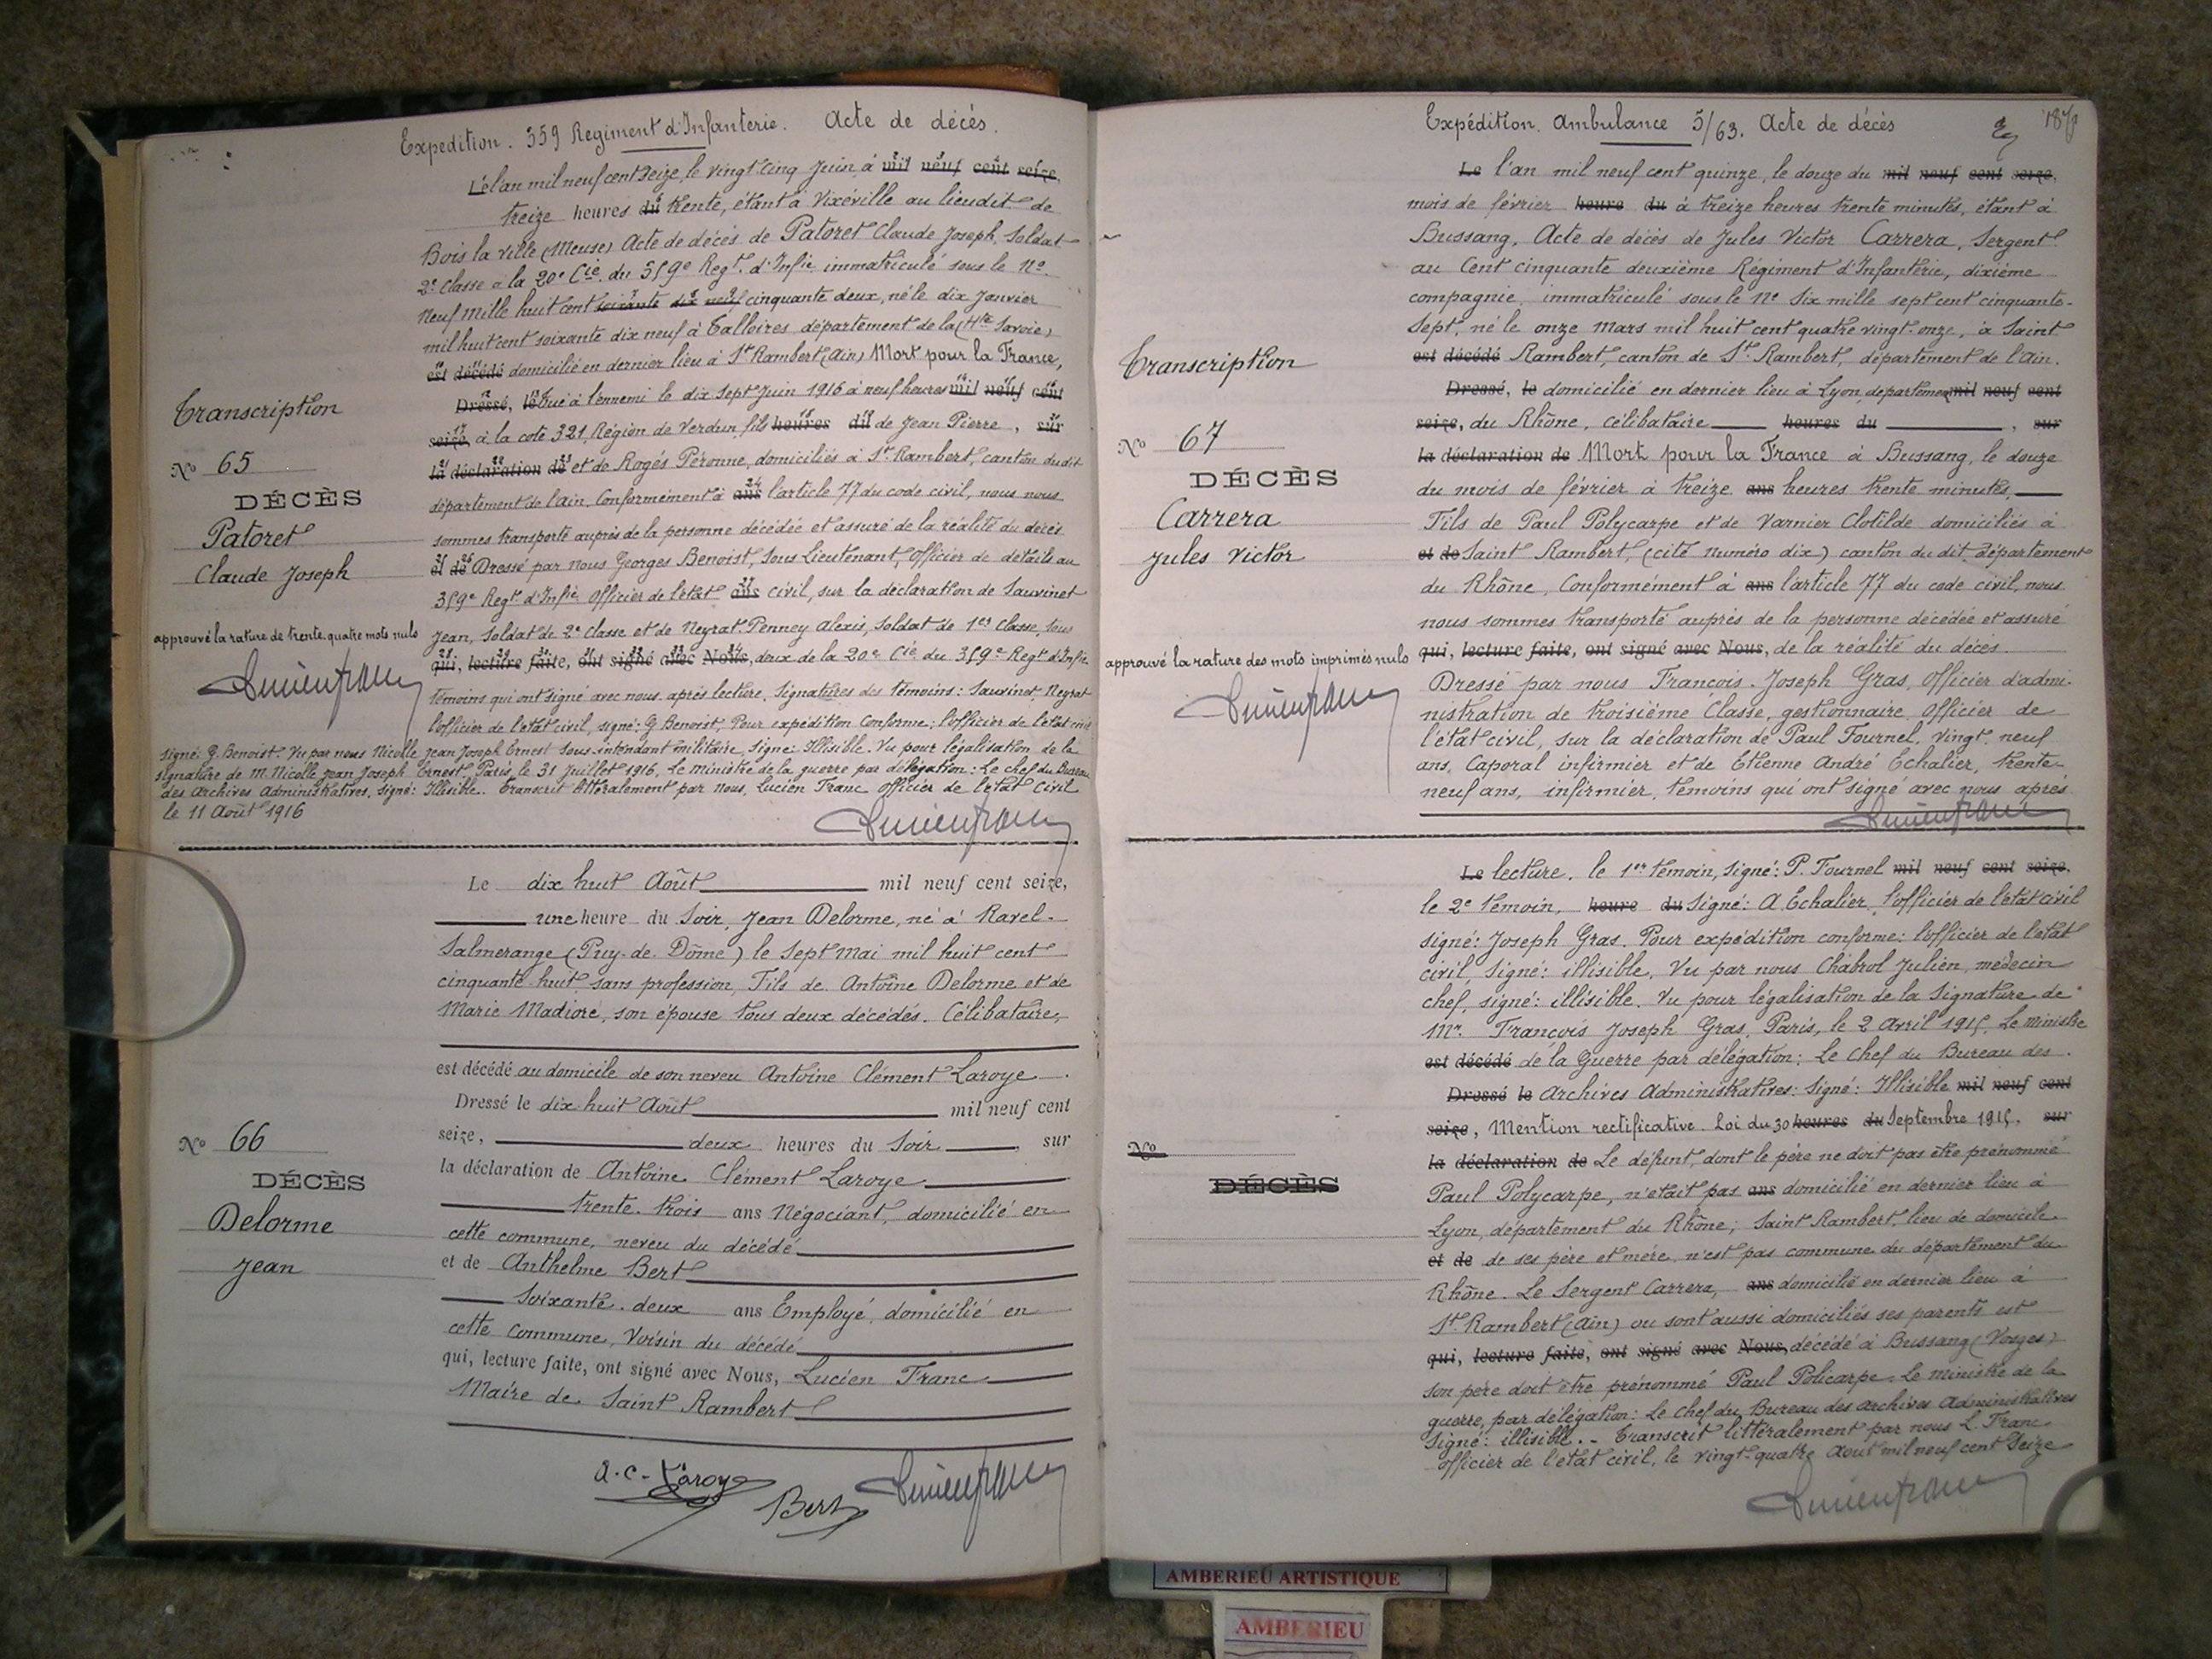 Expedition. 359 Regiment d'Infanterie. Acte de décès.
Le l'an mil neuf cent seize, le vingt-cinq Juin à mil neuf cent seize,
treize heures du trente, étant à Vixéville au lieudit de
Bois la ville (Meuse) Acte de décès de Patoret Claude Joseph, Soldat
2e Classe à la 20e Cie du 359e Regt. d'Infie immatriculé sous le No
neuf mille huit cent soixante dix neuf cinquante deux, né le dix Janvier
mil huit cent soixante dix neuf à Talloires département de la (Hte Savoie)
est décédé domicilié en dernier lieu à St Rambert (Ain) Mort pour la France,
Dressé, le tué à l'ennemi le dix sept Juin 1916 à neuf heures mil neuf cent
seize, à la cote 321, Région de Verdun, fils heures du de Jean Pierre, sur
la déclaration de et de Rogés Péronne, domiciliés à St Rambert, canton dudit
département de l'ain. Conformément à ans l'article 77 du code civil, nous nous
sommes transporté auprès de la personne décédée et assuré de la réalité du décès
et de Dressé par nous Georges Benoist, Sous Lieutenant, Officier de détails au
359e Regt d'Infie Officier de l'état ans civil, sur la déclaration de Sauvinet
Jean, Soldat de 2e Classe et de Neyrat-Penney Alexis, Soldat de 1ere Classe, tous
qui, lecture faite, ont signé avec Nous, deux de la 20e Cie du 359e Regt d'Infie
témoins qui ont signé avec nous après lecture. Signatures des témoins: Sauvinet, Neyrat
l'officier de l'état civil, signé: G Benoist, Pour expédition conforme; l'officier de l'état civil
signé: G. Benoist. Vu par nous Nicolle Jean Joseph Ernest Sous-intendant militaire, signé: Illisible. Vu pour légalisation de la
signature de M. Nicolle Jean Joseph Ernest Paris, le 31 Juillet 1916, Le ministre de la guerre par délégation: Le chef du Bureau
des Archives Administratives, signé: Illisible. Transcrit littéralement par nous, Lucien Franc officier de l'état civil
le 11 Août 1916
Lucien Franc
Transcription
No 65
DÉCÈS
Patoret
Claude Joseph
approuvé la rature de trente quatre mots nuls
Lucien Franc
Le dix huit Août mil neuf cent seize,
une heure du Soir, Jean Delorme, né à Ravel-
Salmerange (Puy-de-Dôme) le sept Mai mil huit cent
cinquante-huit, sans profession, Fils de Antoine Delorme et de
Marie Madiore, son épouse tous deux décédés. Célibataire,
est décédé au domicile de son neveu Antoine Clément Laroye.
Dressé le dix-huit Août mil neuf cent
seize, deux heures du Soir, sur
la déclaration de Antoine Clément Laroye
trente-trois ans Négociant, domicilié en
cette commune, neveu du décédé
et de Anthelme Bert
Soixante-deux ans Employé, domicilié en
cette commune, Voisin du décédé
qui, lecture faite, ont signé avec Nous, Lucien Franc
Maire de Saint Rambert
No 66
DÉCÈS
Delorme
Jean
A-C-Laroye
Bert
Lucien Franc
Expédition. Ambulance 5/63. Acte de décès
Le l'an mil neuf cent quinze, le douze du mil neuf cent seize,
mois de février heure du à treize heures trente minutes, étant à
Bussang, Acte de décès de Jules Victor Carrera, Sergent
au Cent cinquante deuxième Régiment d'Infanterie, dixième
compagnie, immatriculé sous le No Six mille sept cent cinquante-
sept, né le onze Mars mil huit cent quatre vingt-onze, à Saint
est décédé Rambert, canton de St. Rambert, département de l'Ain.
Dressé, le domicilié en dernier lieu à Lyon, département mil neuf cent
seize, du Rhône, célibataire heures du , sur
la déclaration de Mort pour la France à Bussang, le douze
du mois de février à treize ans heures trente minutes,
Fils de Paul Polycarpe et de Varnier Clotilde domiciliés à
et de Saint Rambert, (cité numéro dix) canton du dit département
du Rhône, Conformément à ans l'article 77 du code civil, nous
nous sommes transporté auprès de la personne décédée et assuré
qui, lecture faite, ont signé avec Nous, de la réalité du décès.
Dressé par nous François-Joseph Gras, Officier d'admi-
nistration de troisième Classe, gestionnaire, Officier de
l'état civil, sur la déclaration de Paul Fournel, vingt-neuf
ans, Caporal infirmier et de Etienne André Echalier, trente-
neuf ans, infirmier, témoins qui ont signé avec nous après
Lucien Franc
Transcription
No 67
DÉCÈS
Carrera
Jules Victor
approuvé la rature des mots imprimés nuls
Lucien Franc
Le lecture. le 1er témoin, Signé: P. Fournel mil neuf cent seize,
le 2e témoin, heure du Signé: A Echalier, l'officier de l'état civil
signé: Joseph Gras. Pour expédition conforme: l'officier de l'état
civil, Signé: illisible, Vu par nous Chabrol Julien, médecin
chef, signé: illisible. Vu pour légalisation de la Signature de
Mr. François Joseph Gras, Paris, le 2 Avril 1915, Le ministre
est décédé de la Guerre par délégation: Le Chef du Bureau des
Dressé le Archives Administratives: Signé: Illisible mil neuf cent
seize, Mention rectificative. Loi du 30 heures du Septembre 1915, sur
la déclaration de Le défunt, dont le père ne doit pas être prénommé
Paul Polycarpe, n'était pas ans domicilié en dernier lieu à
Lyon, département du Rhône; Saint Rambert, lieu de domicile
et de de ses père et mère n'est pas commune du département du
Rhône. Le Sergent Carrera, ans domicilié en dernier lieu à
St. Rambert (Ain) ou sont aussi domiciliés ses parents est
qui, lecture faite, ont signé avec Nous, décédé à Bussang (Vosges)
son père doit être prénommé Paul Policarpe. Le ministre de la
guerre, par délégation: Le Chef du Bureau des Archives Administratives
Signé: illisible.- Transcrit littéralement par nous L Franc
officier de l'état civil, le vingt-quatre Août mil neuf cent Seize
Lucien Franc
No
DÉCÈS
AMBERIEU ARTISTIQUE
AMBERIEU